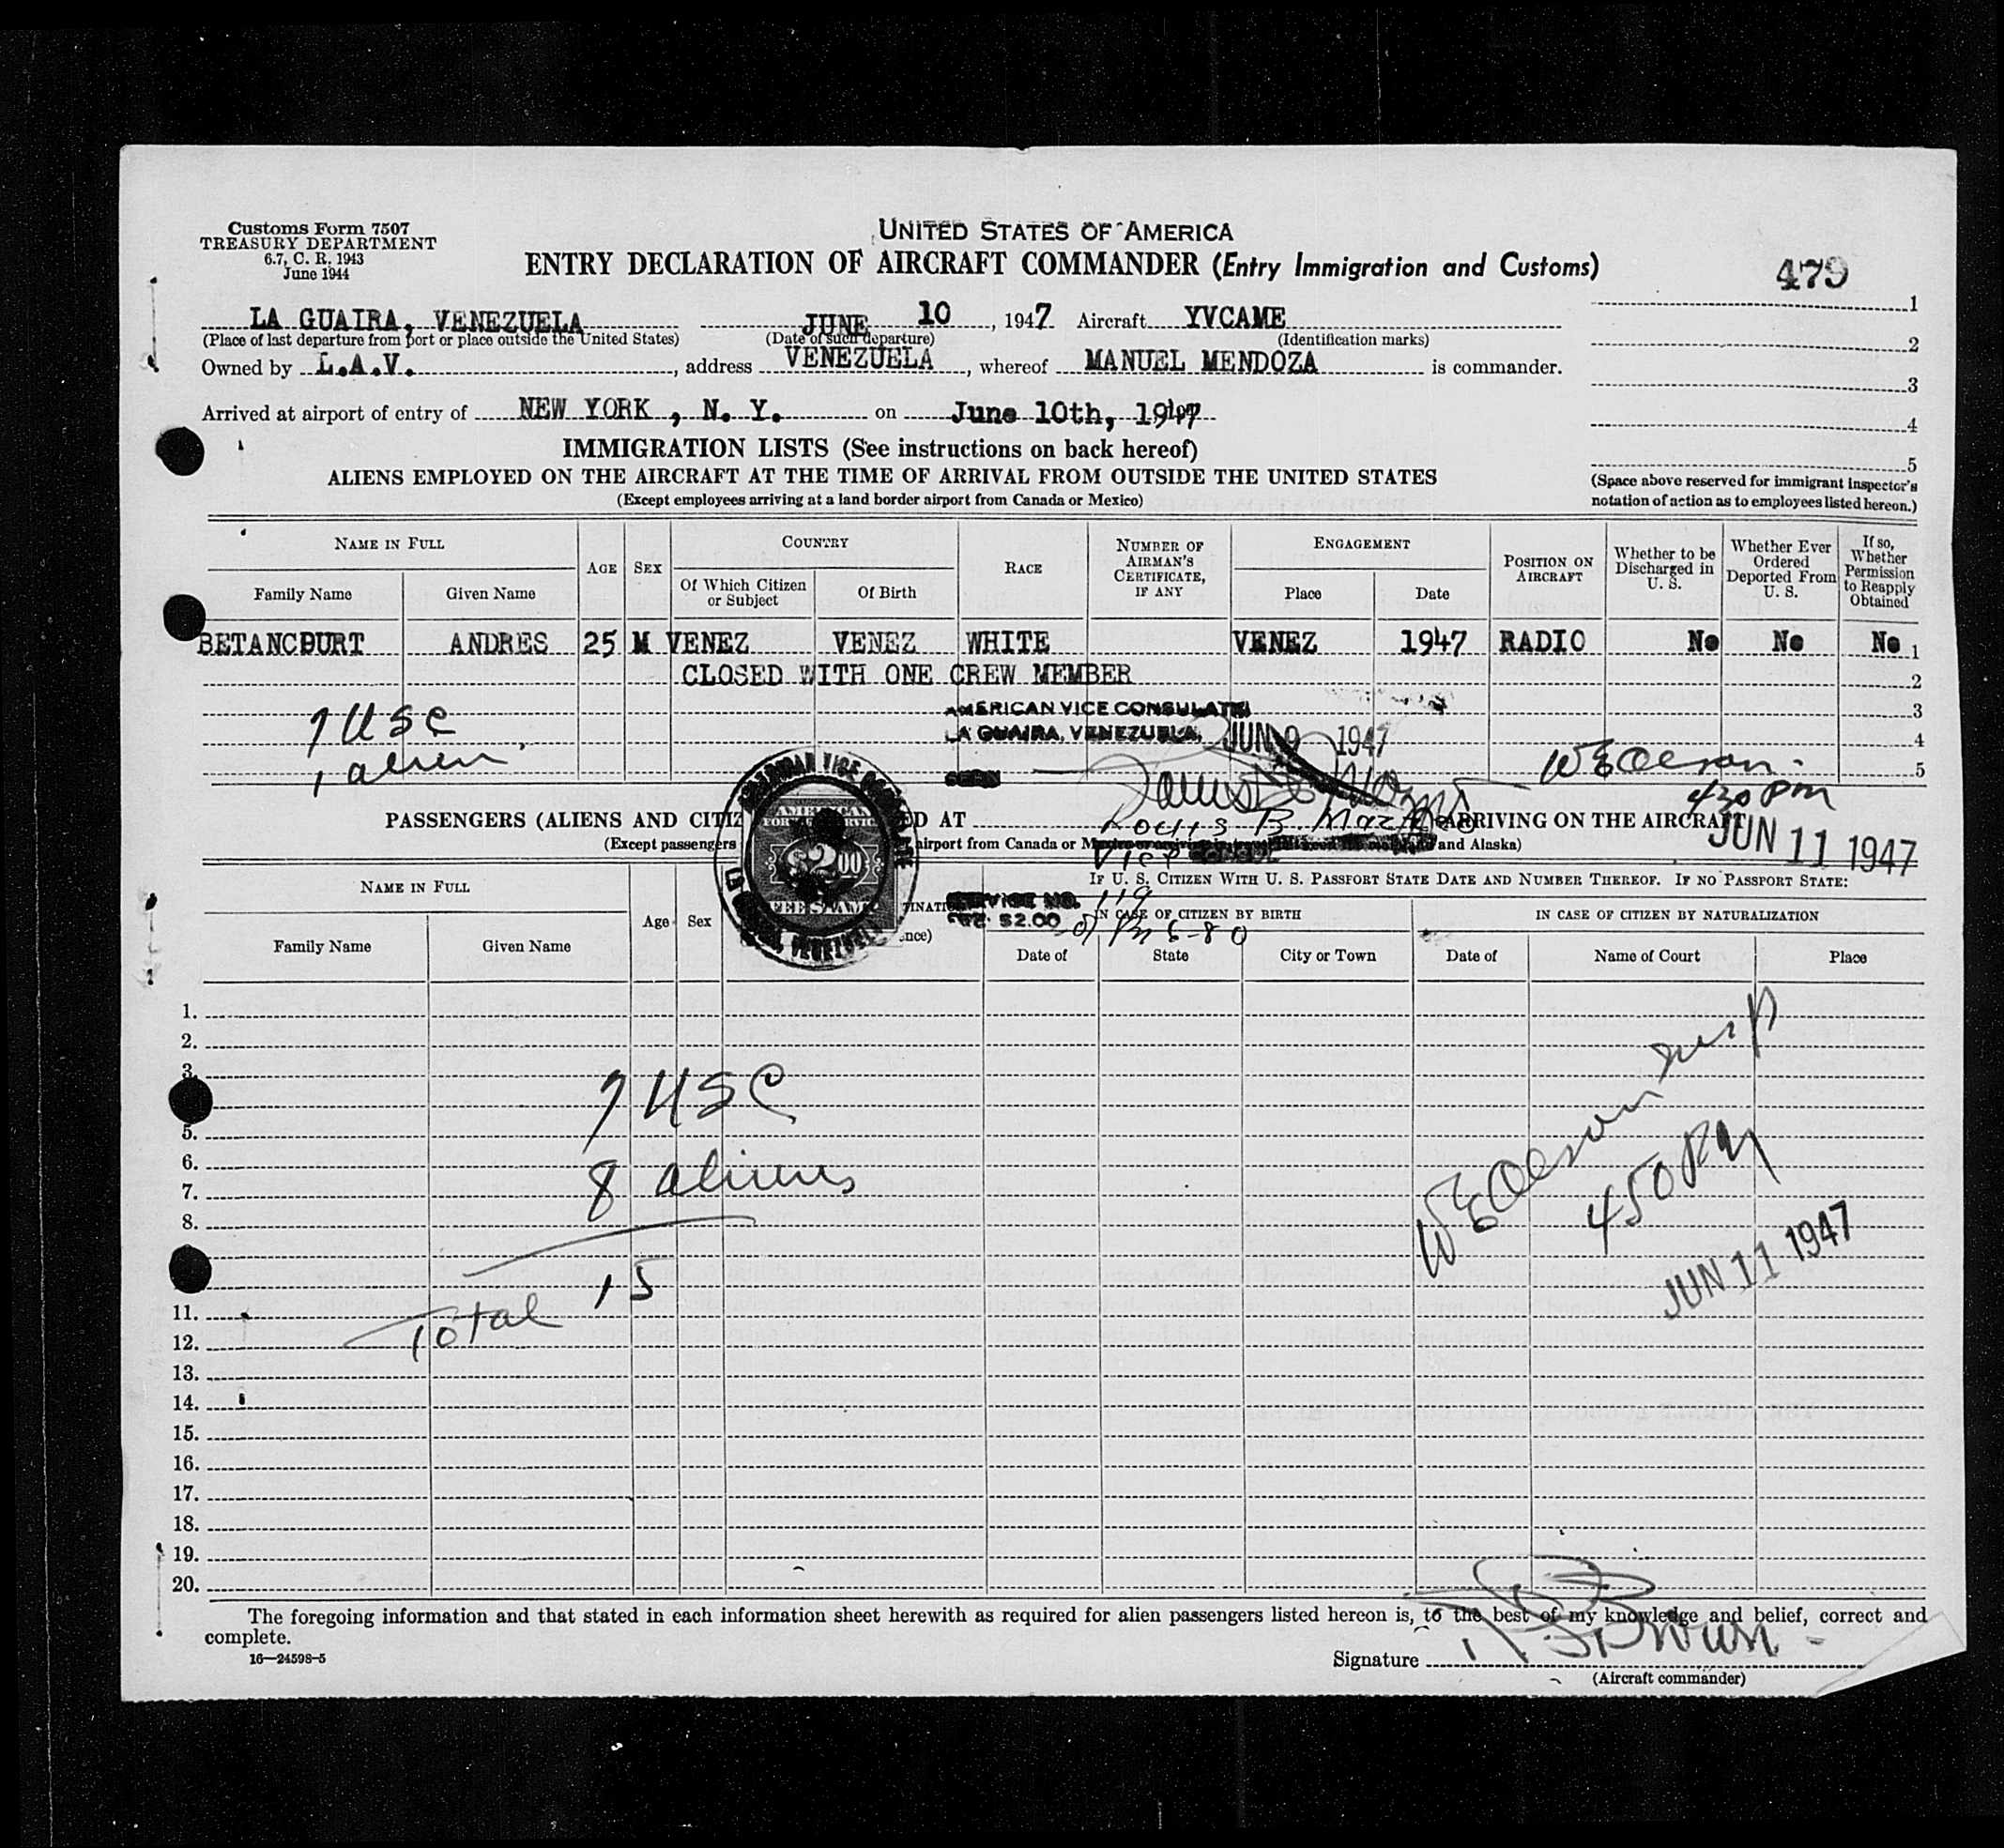 Customs Form 7507
TREASURY DEPARTMENT
6.7, C. R. 1943
June 1944
UNITED STATES OF AMERICA
ENTRY DECLARATION OF AIRCRAFT COMMANDER (Entry Immigration and Customs)
479
LA GUAIRA, VENEZUELA JUNE 10, 1947 Aircraft YVCAME
(Place of last departure from port or place outside the United States) (Date of such departure) (Identification marks)
Owned by L.A.V., address VENEZUELA, whereof MANUEL MENDOZA is commander.
Arrived at airport of entry of NEW YORK, N. Y. on June 10th, 1947
1
2
3
4
5
(Space above reserved for immigrant inspector's
notation of action as to employees listed hereon.)
IMMIGRATION LISTS (See instructions on back hereof)
ALIENS EMPLOYED ON THE AIRCRAFT AT THE TIME OF ARRIVAL FROM OUTSIDE THE UNITED STATES
(Except employees arriving at a land border airport from Canada or Mexico)
NAME IN FULL
Family Name
Given Name
AGE
SEX
COUNTRY
Of Which Citizen or Subject
Of Birth
RACE
NUMBER OF AIRMAN'S CERTIFICATE, IF ANY
ENGAGEMENT
Place
Date
POSITION ON AIRCRAFT
Whether to be Discharged in U. S.
Whether Ever Ordered Deported From U. S.
If so, Whether Permission to Reapply Obtained
BETANCOURT ANDRES 25 M VENEZ VENEZ WHITE VENEZ 1947 RADIO No No No 1
CLOSED WITH ONE CREW MEMBER 2
7 USC 3
AMERICAN VICE CONSULATE
LA GUAIRA, VENEZUELA, JUN 9 1947 4
1 alien 5
SEEN
W E Olsson
430 PM
JUN 11 1947
PASSENGERS (ALIENS AND CITIZ ED AT ARRIVING ON THE AIRCRAFT
(Except passengers airport from Canada or and Alaska)
Louis B
Vice CONSUL
AMERICAN VICE CONSULATE
LA GUAIRA, VENEZUELA
AMERICAN
FOREIGN SERVICE
$2.00
FEE STAMP
SERVICE NO. 119
FEE $2.00
NAME IN FULL
Family Name
Given Name
Age
Sex
IF U. S. CITIZEN WITH U. S. PASSPORT STATE DATE AND NUMBER THEREOF. IF NO PASSPORT STATE:
IN CASE OF CITIZEN BY BIRTH
Date of
State
City or Town
IN CASE OF CITIZEN BY NATURALIZATION
Date of
Name of Court
Place
1.
2.
3.
7 USC
5.
6.
8 aliens
7.
8.
15
11.
Total
12.
W E Olsson Insp
450 PM
JUN 11 1947
13.
14.
15.
16.
17.
18.
19.
20.
The foregoing information and that stated in each information sheet herewith as required for alien passengers listed hereon is, to the best of my knowledge and belief, correct and
complete.
16—24598-5
Signature
(Aircraft commander)